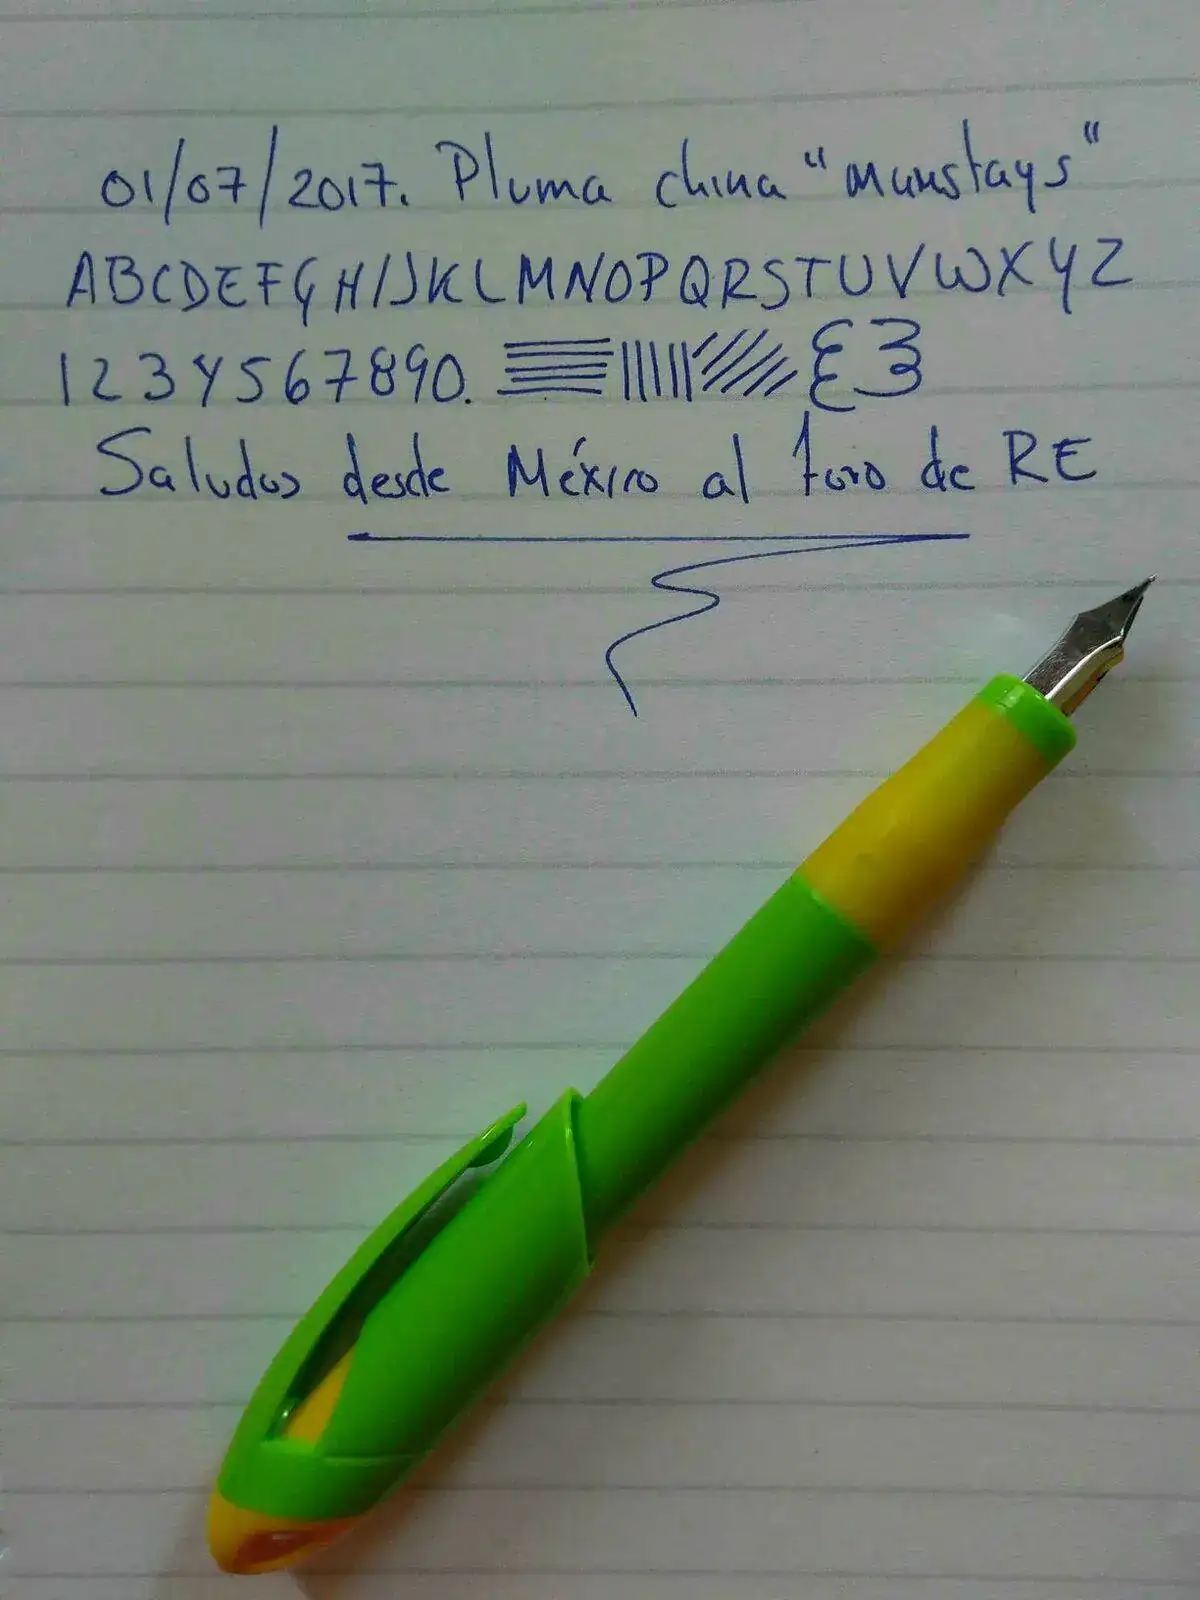 01/07/2017. Pluma china "munstays"
ABCDEFGHIJKLMNOPQRSTUVWXYZ
1234567890.
Saludos desde México al foro de RE